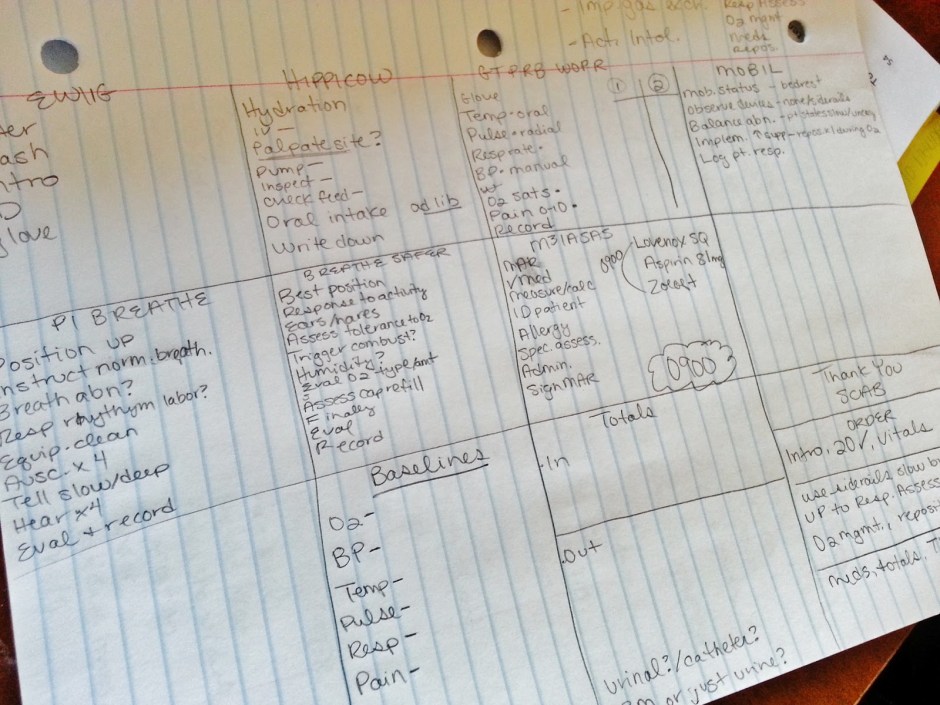 - Imp. gas exch.
- Act. Intol.
Resp Assess
O2 mgmt
meds
Repos.
EWIIG
ash
ntro
ID
glove
HIPPICOW
Hydration
IV -
Palpate site?
Pump -
Inspect -
Check feed -
Oral intake ad lib
Write down
GTPRB WORR
① ②
Glove
Temp - oral
Pulse • radial
Resp rate •
BP • manual
wt
O2 sats •
Pain 0-10 •
Record
MOBIL
mob. status - bedrest
Observe devices - none/siderails
Balance abn. -
Implem. ↑ supp - repos x1 during O2
Log pt. resp.
PI BREATHE
Position up
Instruct norm. breath.
Breath abn?
Resp rhythym labor?
Equip. clean
Ausc. x 4
Tell slow/deep
Hear x4
Eval + record
BREATHE SAFER
Best position
Response to activity
Ears/nares
Assess tolerance to O2
Trigger combust?
Humidity?
Eval O2 type/amt
S
Assess cap refill
Finally
Eval
Record
M3IASAS
MAR
√ med
measure/calc
ID patient
Allergy
Spec. assess.
Admin.
Sign MAR
0900
Lovenox SQ
Aspirin 81mg
Zoloft
0900
Thank You
SCAB
ORDER
Intro, 20√, Vitals
use siderails, slow
up to Resp. Assess
O2 mgmt., reposi
meds, totals, T
Baselines
O2 -
BP -
Temp -
Pulse -
Resp -
Pain -
Totals
• In
• Out
urinal?/catheter?
or just urine?